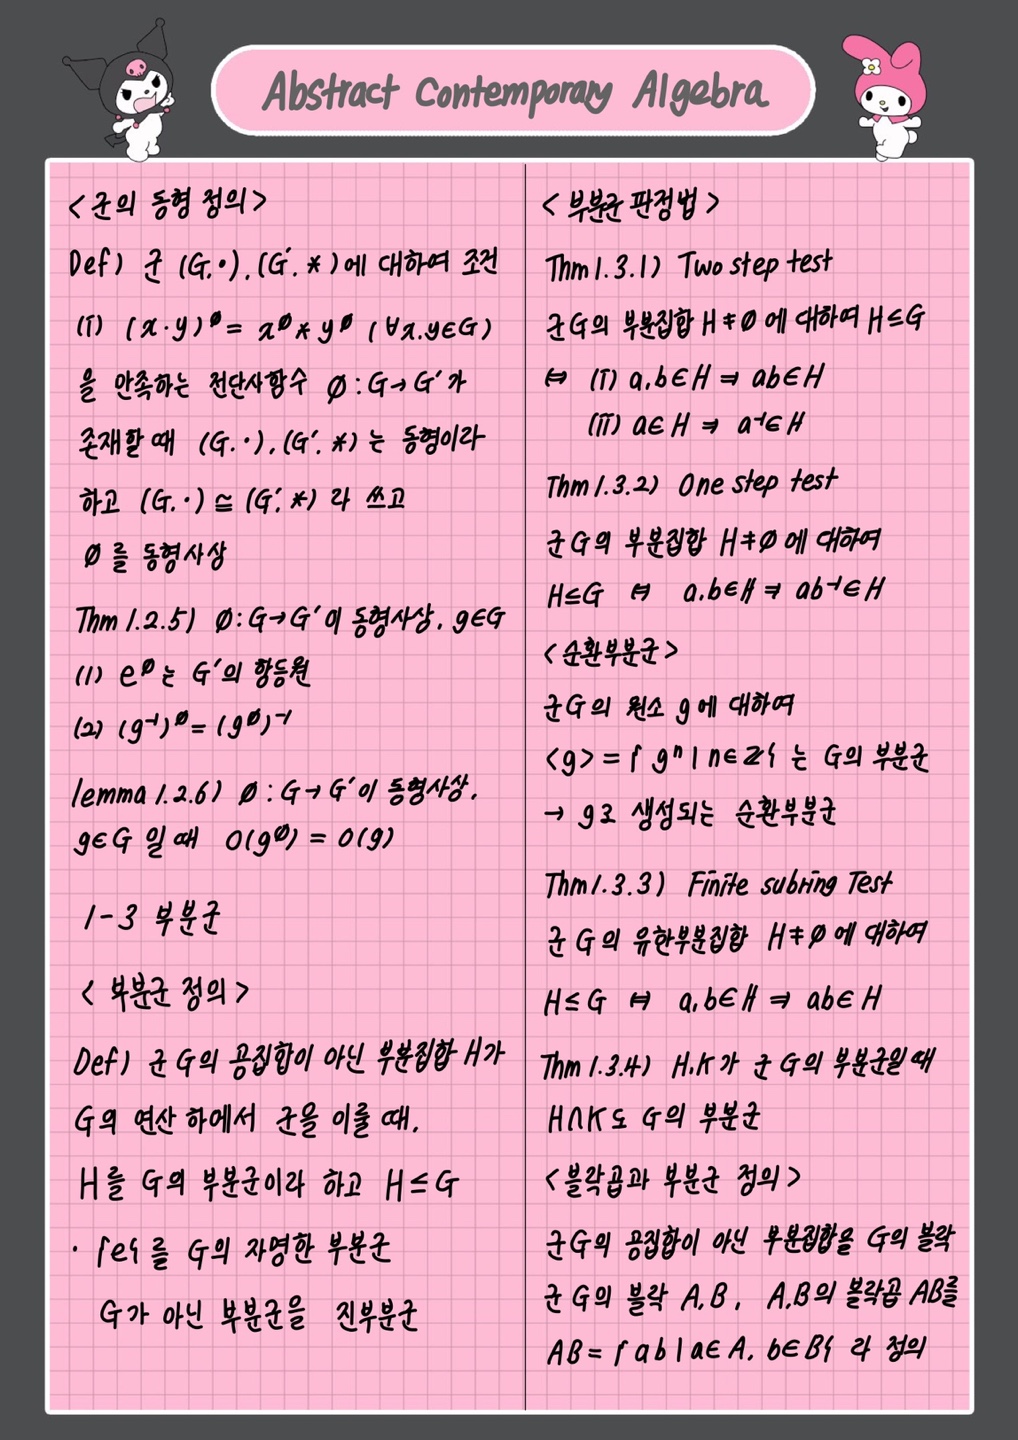 Abstract Contemporary Algebra
<군의 동형 정의>
Def) 군 (G,·), (G′, *)에 대하여 조건
(i) (x·y)^ø = x^ø * y^ø (∀x,y∈G)
을 만족하는 전단사함수 ø: G→G′가
존재할 때 (G,·), (G′, *)는 동형이라
하고 (G,·) ≅ (G′, *) 라 쓰고
ø를 동형사상
Thm 1.2.5) ø: G→G′이 동형사상, g∈G
(1) e^ø는 G′의 항등원
(2) (g⁻¹)^ø = (g^ø)⁻¹
lemma 1.2.6) ø: G→G′이 동형사상,
g∈G 일 때 O(g^ø) = O(g)
1-3 부분군
<부분군 정의>
Def) 군 G의 공집합이 아닌 부분집합 H가
G의 연산 하에서 군을 이룰 때,
H를 G의 부분군이라 하고 H≤G
· {e}를 G의 자명한 부분군
G가 아닌 부분군을 진부분군
<부분군 판정법>
Thm 1.3.1) Two step test
군G의 부분집합 H≠ø에 대하여 H≤G
⇔ (i) a,b∈H ⇒ ab∈H
(ii) a∈H ⇒ a⁻¹∈H
Thm 1.3.2) One step test
군G의 부분집합 H≠ø에 대하여
H≤G ⇔ a,b∈H ⇒ ab⁻¹∈H
<순환부분군>
군G의 원소 g에 대하여
<g> = {gⁿ | n∈ℤ}는 G의 부분군
→ g로 생성되는 순환부분군
Thm 1.3.3) Finite subring Test
군 G의 유한부분집합 H≠ø에 대하여
H≤G ⇔ a,b∈H ⇒ ab∈H
Thm 1.3.4) H,K가 군 G의 부분군일 때
H∩K도 G의 부분군
<블락곱과 부분군 정의>
군G의 공집합이 아닌 부분집합을 G의 블락
군 G의 블락 A,B, A,B의 블락곱 AB를
AB = {ab | a∈A, b∈B}라 정의